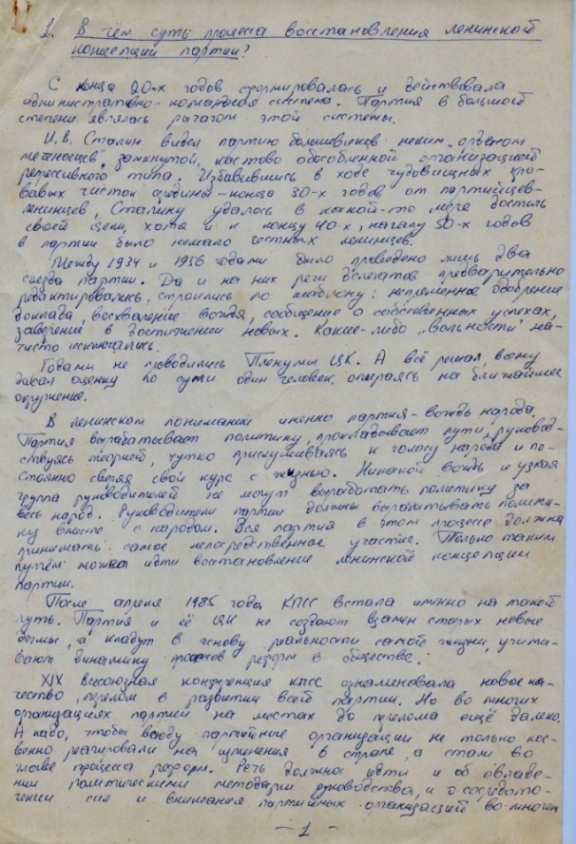 1. В чём суть процесса восстановления ленинской
концепции партии?
С конца 20-х годов сформировалась и действовала
административно-командная система. Партия в большой
степени являлась рычагом этой системы.
И.В. Сталин видел партию большевиков неким „орденом
меченосцев", замкнутой, кастово обособленной организацией
репрессивного типа. Избавившись в ходе чудовищных кро-
вавых чисток середины-конца 30-х годов от партийцев-
ленинцев, Сталину удалось в какой-то мере достичь
своей цели, хотя и к концу 40-х, началу 50-х годов
в партии было немало честных ленинцев.
Между 1934 и 1956 годами было проведено лишь два
съезда партии. Да и на них речи делегатов предварительно
редактировались, строились по шаблону: непременное одобрение
доклада, восхваление вождя, сообщение о собственных успехах,
заверение в достижении новых. Какие-либо „вольности" на-
чисто исключались.
Годами не проводились Пленумы ЦК. А всё решал всему
давал оценку по сути один человек, опираясь на ближайшее
окружение.
В ленинском понимании именно партия - вождь народа.
Партия вырабатывает политику, прокладывает пути, руковод-
ствуясь теорией, чутко прислушиваясь к голосу народа и по-
стоянно сверяя свой курс с жизнью. Никакой вождь и узкая
группа руководителей не могут выработать политику за
весь народ. Руководители партии должны вырабатывать полити-
ку вместе с народом. Вся партия в этом процессе должна
принимать самое непосредственное участие. Только таким
путём может идти восстановление ленинской концепции
партии.
После апреля 1985 года КПСС встала именно на такой
путь. Партия и её ЦК не создают взамен старых новые
догмы, а кладут в основу реальности самой жизни, учиты-
вают динамику процессов реформ в обществе.
XIX Всесоюзная конференция КПСС ознаменовала новое ка-
чество, перелом в развитии всей партии. Но во многих
организациях партии на местах до перелома ещё далеко.
А надо, чтобы всюду партийные организации не только кос-
венно реагировали на изменения в стране, а стали во
главе процесса реформ. Речь должна идти и об овладе-
нии политическими методами руководства, и о сосредото-
чении сил и внимания партийных организаций во многом
— 1 —